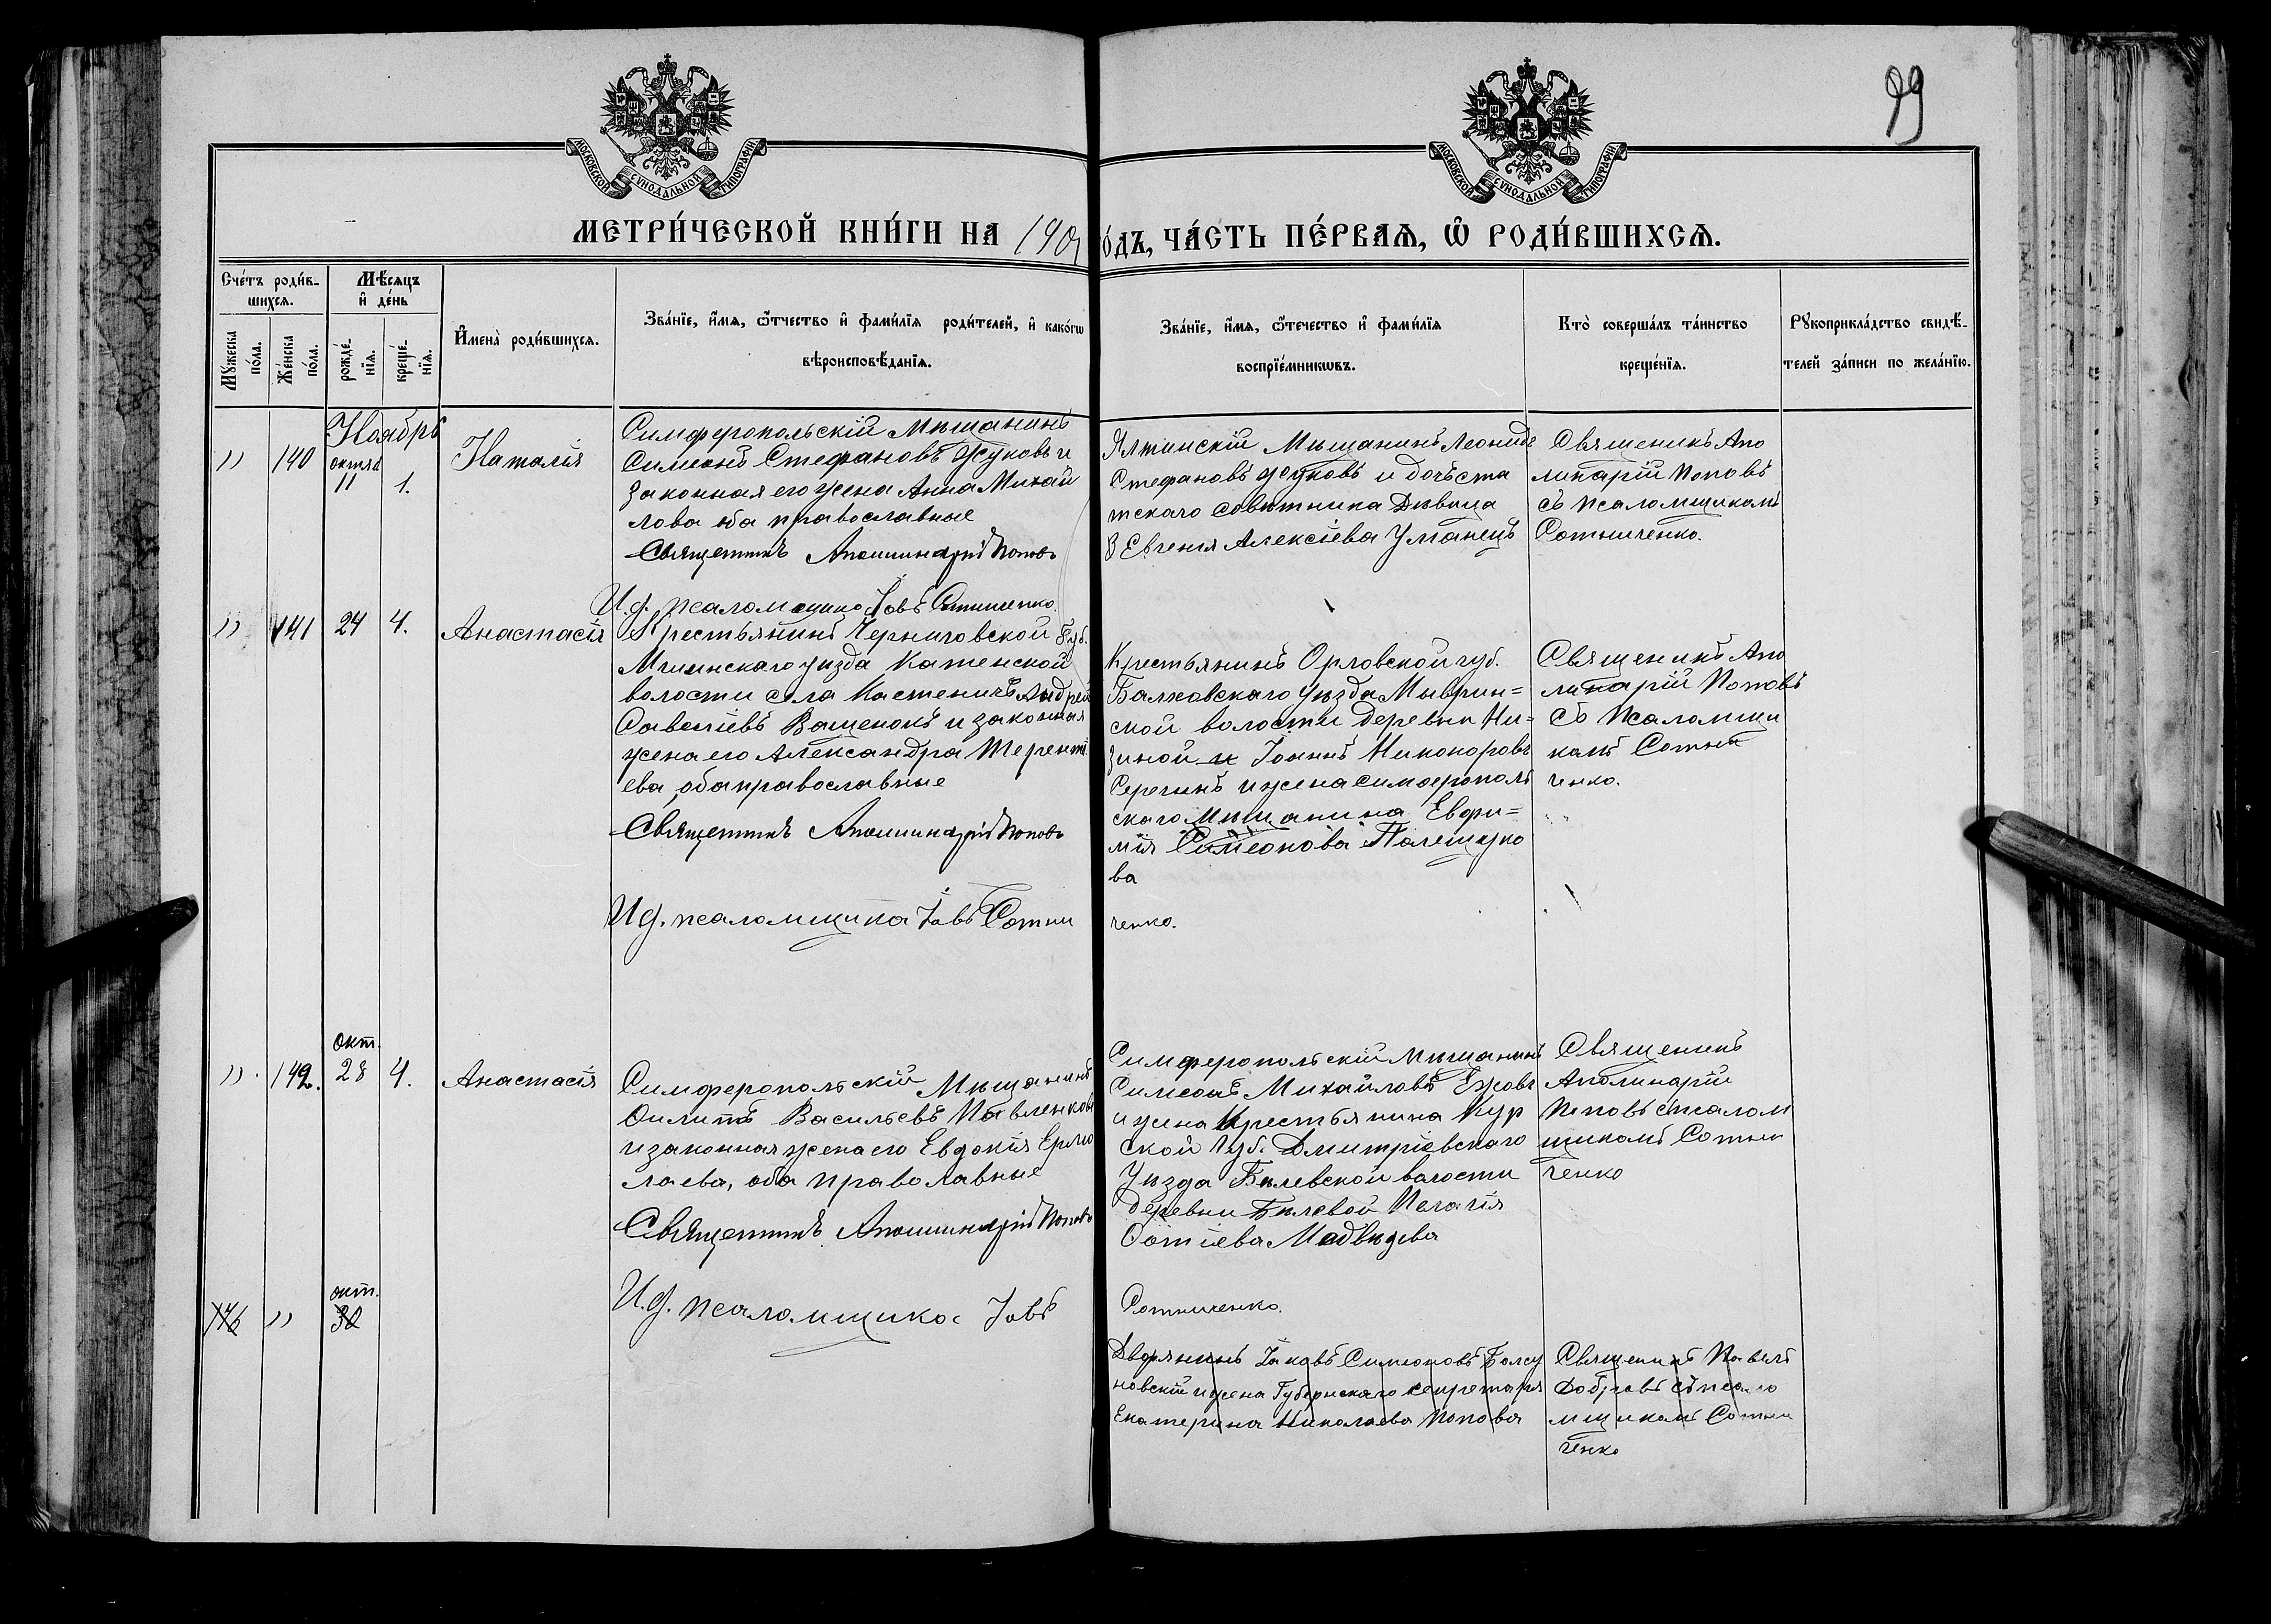 99
МОСКОВСКОЙ СѴНОДАЛЬНОЙ ТИПОГРАФІИ
МОСКОВСКОЙ СѴНОДАЛЬНОЙ ТИПОГРАФІИ
МЕТРИ́ЧЕСКОЙ КНИ́ГИ НА 190
О́ДЪ, ЧА́СТЬ ПЕ́РВАѦ, Ѡ҆ РОДИ́ВШИХСѦ.
Сче́тъ роди́в-
шихсѧ.
Мѣ́сѧцъ
и҆ де́нь
Мꙋ́жеска
по́ла.
Же́нска
по́ла.
рожде́-
нїѧ.
креще́-
нїѧ.
И҆мена̀ роди́вшихсѧ.
Зва́нїе, и҆́мѧ, ѻ҆́тчество и҆ фами́лїѧ роди́телей, и҆ како́гѡ
вѣроисповѣ́данїѧ.
Зва́нїе, и҆́мѧ, ѻ҆́течество и҆ фами́лїѧ
воспрїе́мникѡвъ.
Кто̀ соверша́лъ та́инство
креще́нїѧ.
Рꙋкоприкла́дство свидѣ́-
телей за́писи по жела́нїю.
Ноябрь
" 140 октяб 11 1. Наталія
Симферопольскій Мѣщанинъ
Симеонъ Стефановъ Жуковъ и
законная его жена Анна Михай
лова оба православные
Священникъ Аполлинарій Поповъ
И.д. псаломщика Іовъ Сотниченко.
Ялтинскій Мѣщанинъ Леонидъ
Стефановъ Жуковъ и дочь ста
тскаго совѣтника Дѣвица
Евгенія Алексіева Уманецъ
Священикъ Апо
линарій Поповъ
съ псаломщикомъ
Сотниченко.
" 141 24 4. Анастасія
Крестьянинъ Черниговской Губ.
Мглинскаго уѣзда Катенской
волости села Костеничъ Андрей
Савеліевъ Ващенокъ и законная
жена его Александра Теренті
ева, оба православные
Священникъ Аполлинарій Поповъ
И.д. псаломщика Іовъ Сотни
ченко.
Крестьянинъ Орловской губ.
Балховскаго уѣзда Мывриин=
ской волости деревни Ни=
зиной и Іоаннъ Никоноровъ
Серегинъ и жена симферополь
скаго мѣщанина Евфи=
мія Симеонова Полещуко
ва
Священикъ Апо
линарій Поповъ
съ Псаломщи
комъ Сотни
ченко.
" 142. окт. 28 4. Анастасія
Симферопольскій Мѣщанинъ
Филипъ Васильевъ Павленковъ
и законная жена его Евдокія Ермо
лаева, оба православные
Священникъ Аполлинарій Поповъ
И.д. псаломщика Іовъ
Сотниченко.
Симферопольскій Мѣщанинъ
Симеонъ Михайловъ Ежовъ
и жена Крестьянина Кур
ской Губ. Дмитріевскаго
Уѣзда Бѣлевской волости
деревни Бѣлевой Пелагія
Фотіева Медвѣдева
Священикъ
Аполинарій
Поповъ с псалом
щикомъ Сотни
ченко
146 " окт. 30
Дворянинъ Іаковъ Симеоновъ Болсу
новскій и жена Губернскаго секретаря
Екатерина Николаева Попова
Священикъ Павелъ
Добровъ съ псало
мщикомъ Сотни
ченко